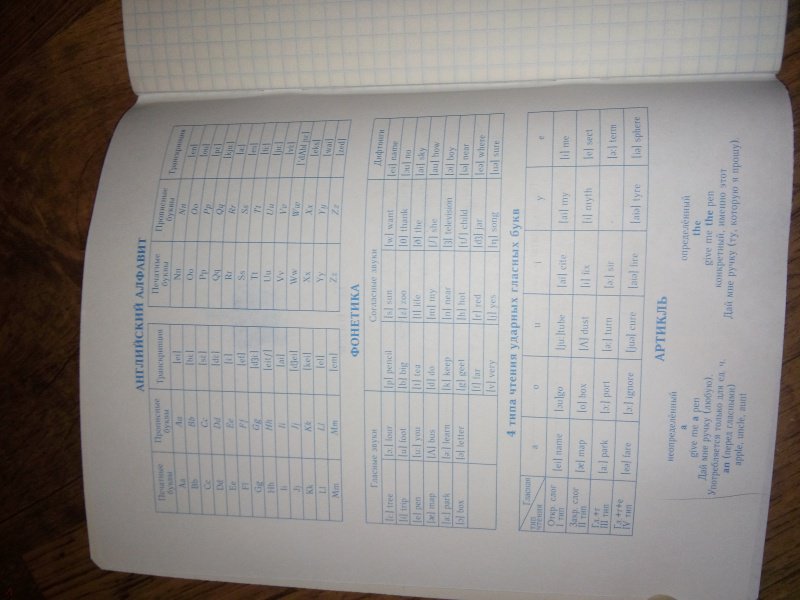 АНГЛИЙСКИЙ АЛФАВИТ
Печатные буквы Прописные буквы Транскрипция Печатные буквы Прописные буквы Транскрипция
Aa Aa [ei] Nn Nn [en]
Bb Bb Oo Oo [ou]
Cc Cc Pp Pp [pi:]
Dd Dd Qq Qq [kju:]
Ee Ee Rr Rr
Ff Ff [ef] Ss Ss
Gg Gg Tt Tt
Hh Hh [eitʃ] Uu Uu
Ii Ii [ai] Vv Vv
Jj Jj [dʒei] Ww Ww
Kk Kk [kei] Xx Xx [eks]
Ll Ll [el] Yy Yy [wai]
Mm Mm [em] Zz Zz [zed]
ФОНЕТИКА
Гласные звуки Согласные звуки Дифтонги
tree four [p] pencil [s] sun [w] want [ei] name
[i] trip [u] foot [b] big [z] zoo [θ] thank no
[e] pen you [t] tea [l] life [ð] the [ai] sky
[æ] map [ʌ] bus [d] do [m] my [ʃ] she [au] bow
park learn [k] keep [n] near [ʒ] television boy
box [ə] letter [g] geet [h] hot [tʃ] child near
[f] far [r] red [dʒ] jar where
[v] very [j] yes [ŋ] song sure
4 типа чтения ударных гласных букв
Гласные Тип чтения a o u i y e
Откр. слог I тип [ei] name go tube [ai] cite [ai] my me
Закр. слог II тип [æ] map [o] box [ʌ] dust [i] fix [i] myth [e] sect
Гл.+r III тип park port turn sir term
Гл.+r+e IV тип fare ignore cure fire tyre sphere
АРТИКЛЬ
неопределённый определённый
a the
give me a pen give me the pen
Дай мне ручку (любую). конкретный, именно этот
Употребляется только для ед. ч. Дай мне ручку (ту, которую я прошу).
an (перед гласными)
apple, uncle, aunt